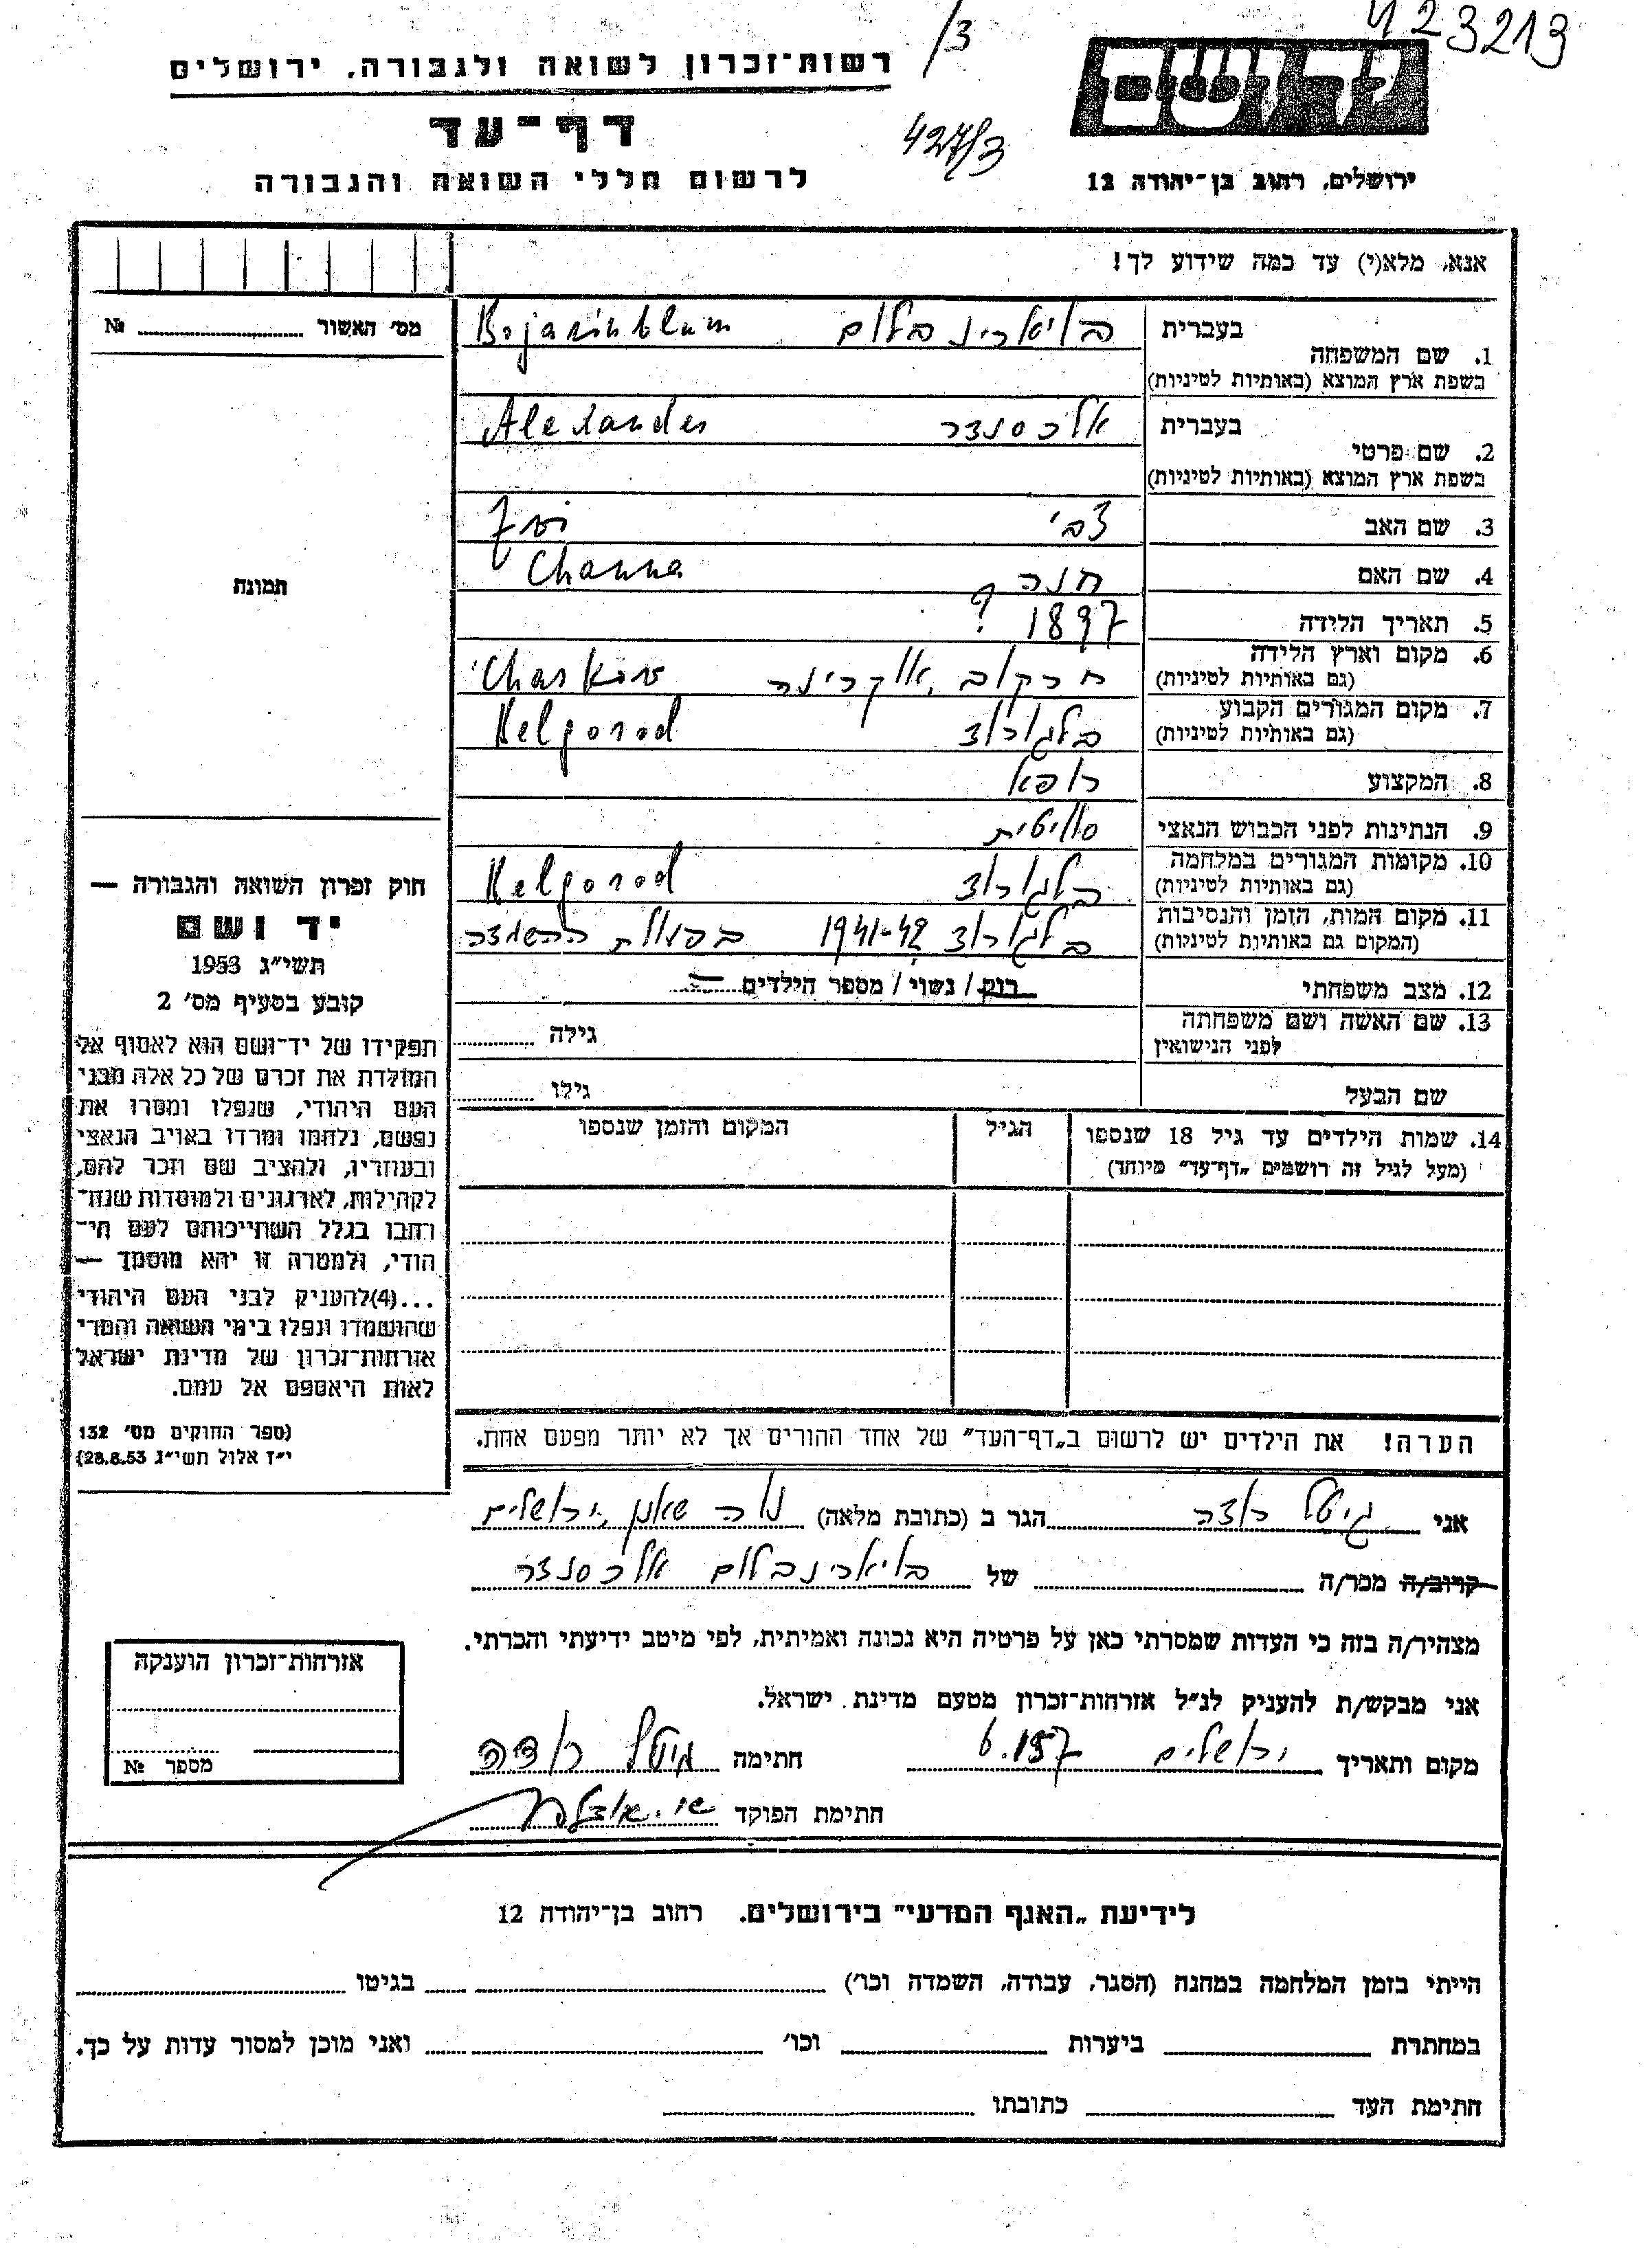 423213
/3
רשות־זכרון לשואה ולגבורה, ירושלים
דף־עד
427/3
לרשום חללי השואה והגבורה
ירושלים, רחוב בן־יהודה 12
אנא, מלא(י) עד כמה שידוע לך!
מס' האשור № 
בעברית בויארינבלום Bojarinblum
1. שם המשפחה
בשפת ארץ המוצא (באותיות לטיניות)
בעברית אלכסנדר Alexander
2. שם פרטי
בשפת ארץ המוצא (באותיות לטיניות)
3. שם האב צבי Zwi
4. שם האם חנה Channa
תמונה
5. תאריך הלידה 1897 ?
6. מקום וארץ הלידה חרקוב, אוקרינה Charkow
(גם באותיות לטיניות)
7. מקום המגורים הקבוע בלגורוד Belgorod
(גם באותיות לטיניות)
8. המקצוע רופא
9. הנתינות לפני הכבוש הנאצי סוויטית
10. מקומות המגורים במלחמה בלגורוד Belgorod
(גם באותיות לטיניות)
11. מקום המות, הזמן והנסיבות בלגורוד 1941-42 בפעולת ההשמדה
(המקום גם באותיות לטיניות)
12. מצב משפחתי רווק / נשוי / מספר הילדים
13. שם האשה ושם משפחתה גילה
לפני הנישואין
שם הבעל גילו
14. שמות הילדים עד גיל 18 שנספו הגיל המקום והזמן שנספו
(מעל לגיל זה רושמים „דף־עד” מיוחד)
חוק זכרון השואה והגבורה —
יד ושם
תשי"ג 1953
קובע בסעיף מס' 2
תפקידו של יד־ושם הוא לאסוף אל
המולדת את זכרם של כל אלה מבני
העם היהודי, שנפלו ומסרו את
נפשם, נלחמו ומרדו באויב הנאצי
ובעוזריו, ולהציב שם וזכר להם,
לקהילות, לארגונים ולמוסדות שנח־
רחבו בגלל השתייכותם לעם הי־
הודי, ולמטרה זו יהא מוסמך —
...(4)להעניק לבני העם היהודי
שהושמדו ונפלו בימי השואה והמרי
אזרחות־זכרון של מדינת ישראל
לאות היאספם אל עמם.
(ספר החוקים מס' 132
י"ז אלול תשי"ג 28.8.53)
הערה! את הילדים יש לרשום ב„דף־העד” של אחד ההורים אך לא יותר מפעם אחת.
אני גיטל רוצה הגר ב (כתובת מלאה) נוה שאנן, ירושלים
קרוב/ה מכר/ה של בויארינבלום אלכסנדר
מצהיר/ה בזה כי העדות שמסרתי כאן על פרטיה היא נכונה ואמיתית, לפי מיטב ידיעתי והכרתי.
אני מבקש/ת להעניק לנ"ל אזרחות־זכרון מטעם מדינת ישראל.
מקום ותאריך ירושלים חתימה
חתימת הפוקד
אזרחות־זכרון הוענקה
מספר №
לידיעת „האגף המדעי” בירושלים. רחוב בן־יהודה 12
הייתי בזמן המלחמה במחנה (הסגר, עבודה, השמדה וכו') בגיטו
במחתרת ביערות וכו' ואני מוכן למסור עדות על כך.
חתימת העד כתובתו